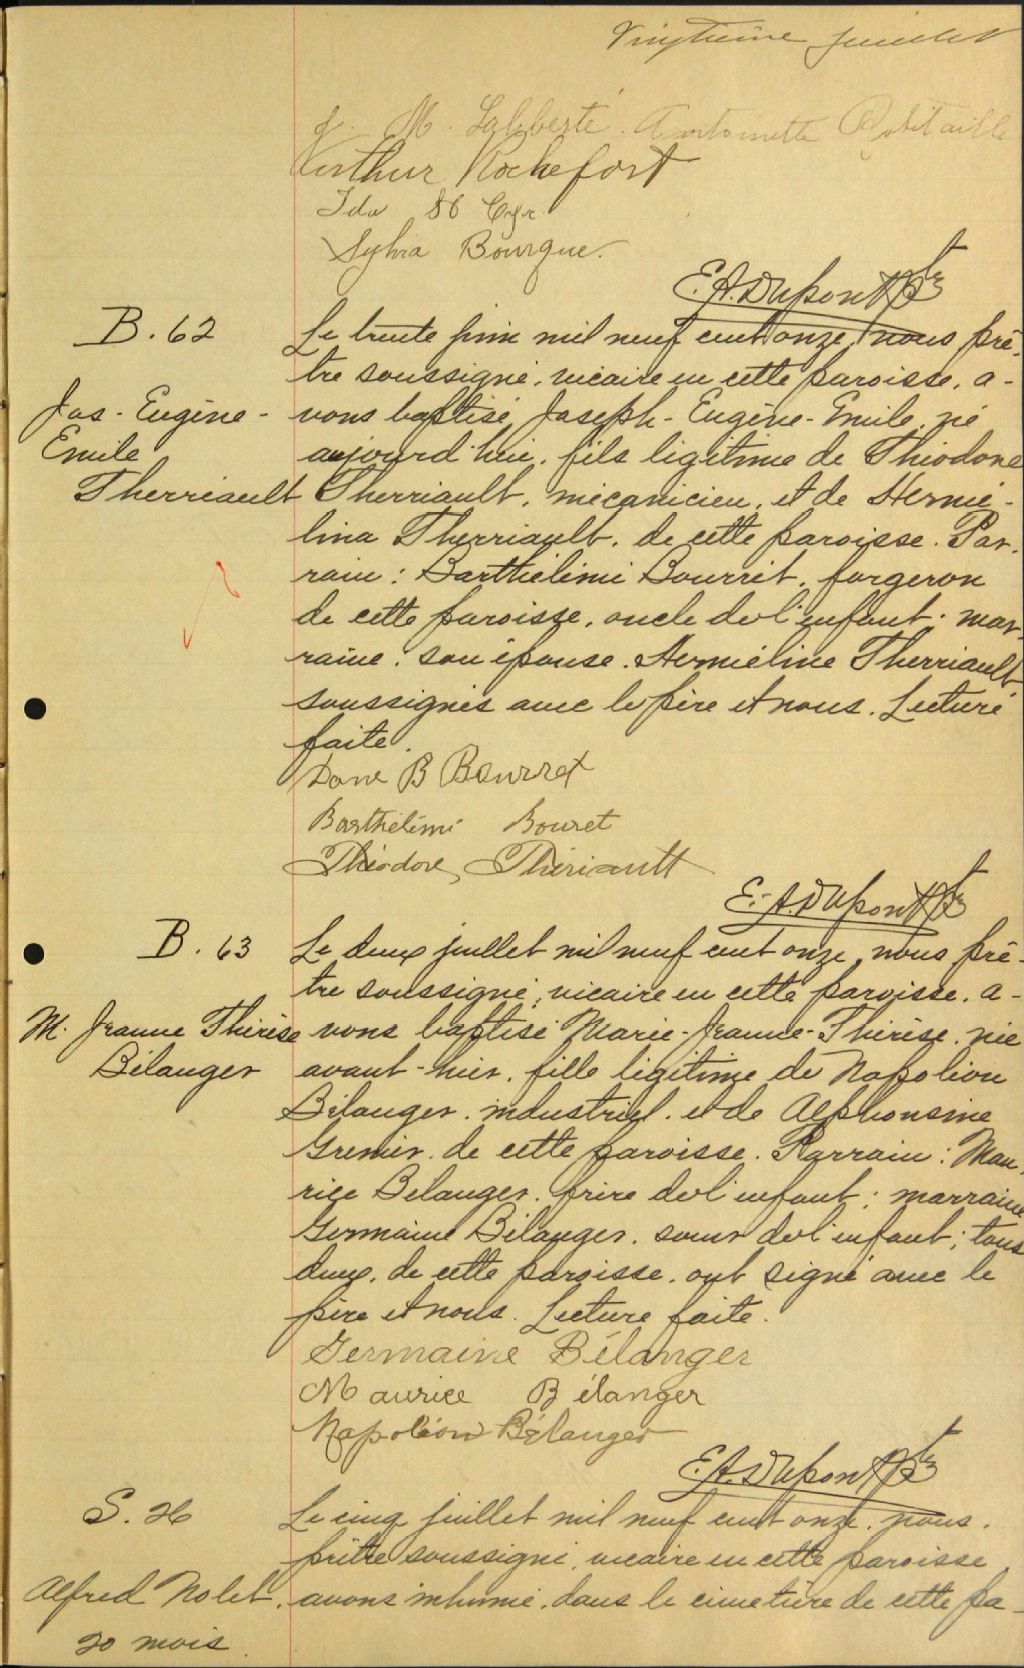 Vingtième feuillet
J. M. Laliberté. Antoinette Robitaille
Arthur Rochefort
Ida St Cyr
Sylvia Bourque.
E. A. Dupont Ptre
B. 62
Le trente juin mil neuf cent onze, nous prê-
tre soussigné, vicaire en cette paroisse, a-
Jos - Eugène -
vons baptisé Joseph - Eugène - Emile, né
Emile
aujourd'hui, fils légitime de Théodore
Therriault
Therriault, mécanicien, et de Hermé-
lina Therriault, de cette paroisse. Par-
rain : Barthélémi Bourret, forgeron
de cette paroisse, oncle de l'enfant ; mar-
raine : son épouse. Herméline Therriault
soussignés avec le père et nous. Lecture
faite.
Dame B Bourret
Barthélémi Bouret
Théodore Thériault
E. A. Dupont Ptre
B. 63
Le deux juillet mil neuf cent onze, nous prê-
tre soussigné, vicaire en cette paroisse, a-
M. Jeanne Thérèse
vons baptisé Marie - Jeanne - Thérèse, née
Bélanger
avant-hier, fille légitime de Napoléon
Bélanger, industriel, et de Alphonsine
Grenier, de cette paroisse. Parrain : Mau-
rice Bélanger, frère de l'enfant ; marraine
Germaine Bélanger, sœur de l'enfant ; tous
deux, de cette paroisse, ont signé avec le
père et nous. Lecture faite.
Germaine Bélanger
Maurice Bélanger
Napoléon Bélanger
E. A. Dupont Ptre
S. 26
Le cinq juillet mil neuf cent onze, nous,
prêtre soussigné, vicaire en cette paroisse
Alfred Nolet,
avons inhumé, dans le cimetière de cette pa-
20 mois